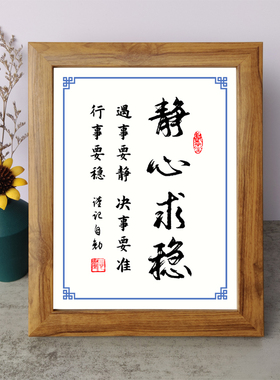 静心求稳
遇事要静 决事要准
行事要稳 谨记自勉